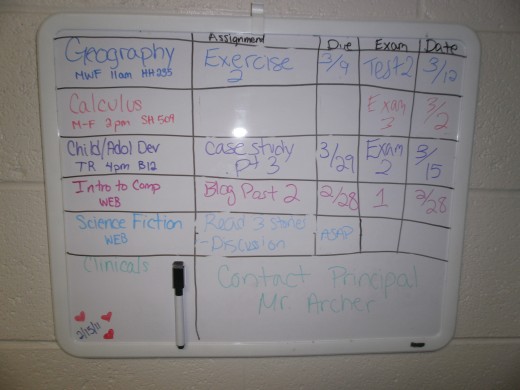 Assignment Due Exam Date
Geography Exercise 3/9 Test 2 3/12
MWF 11am HH 255 2
Calculus Exam 3/2
M-F 2pm SH 509 3
Child/Adol Dev Case study 3/29 Exam 3/15
TR 4pm B12 pt 3 2
Intro to Comp Blog Post 2 2/28 1 2/28
WEB
Science Fiction Read 3 stories ASAP
WEB -Discussion
Clinicals Contact Principal
Mr. Archer
2/15/11